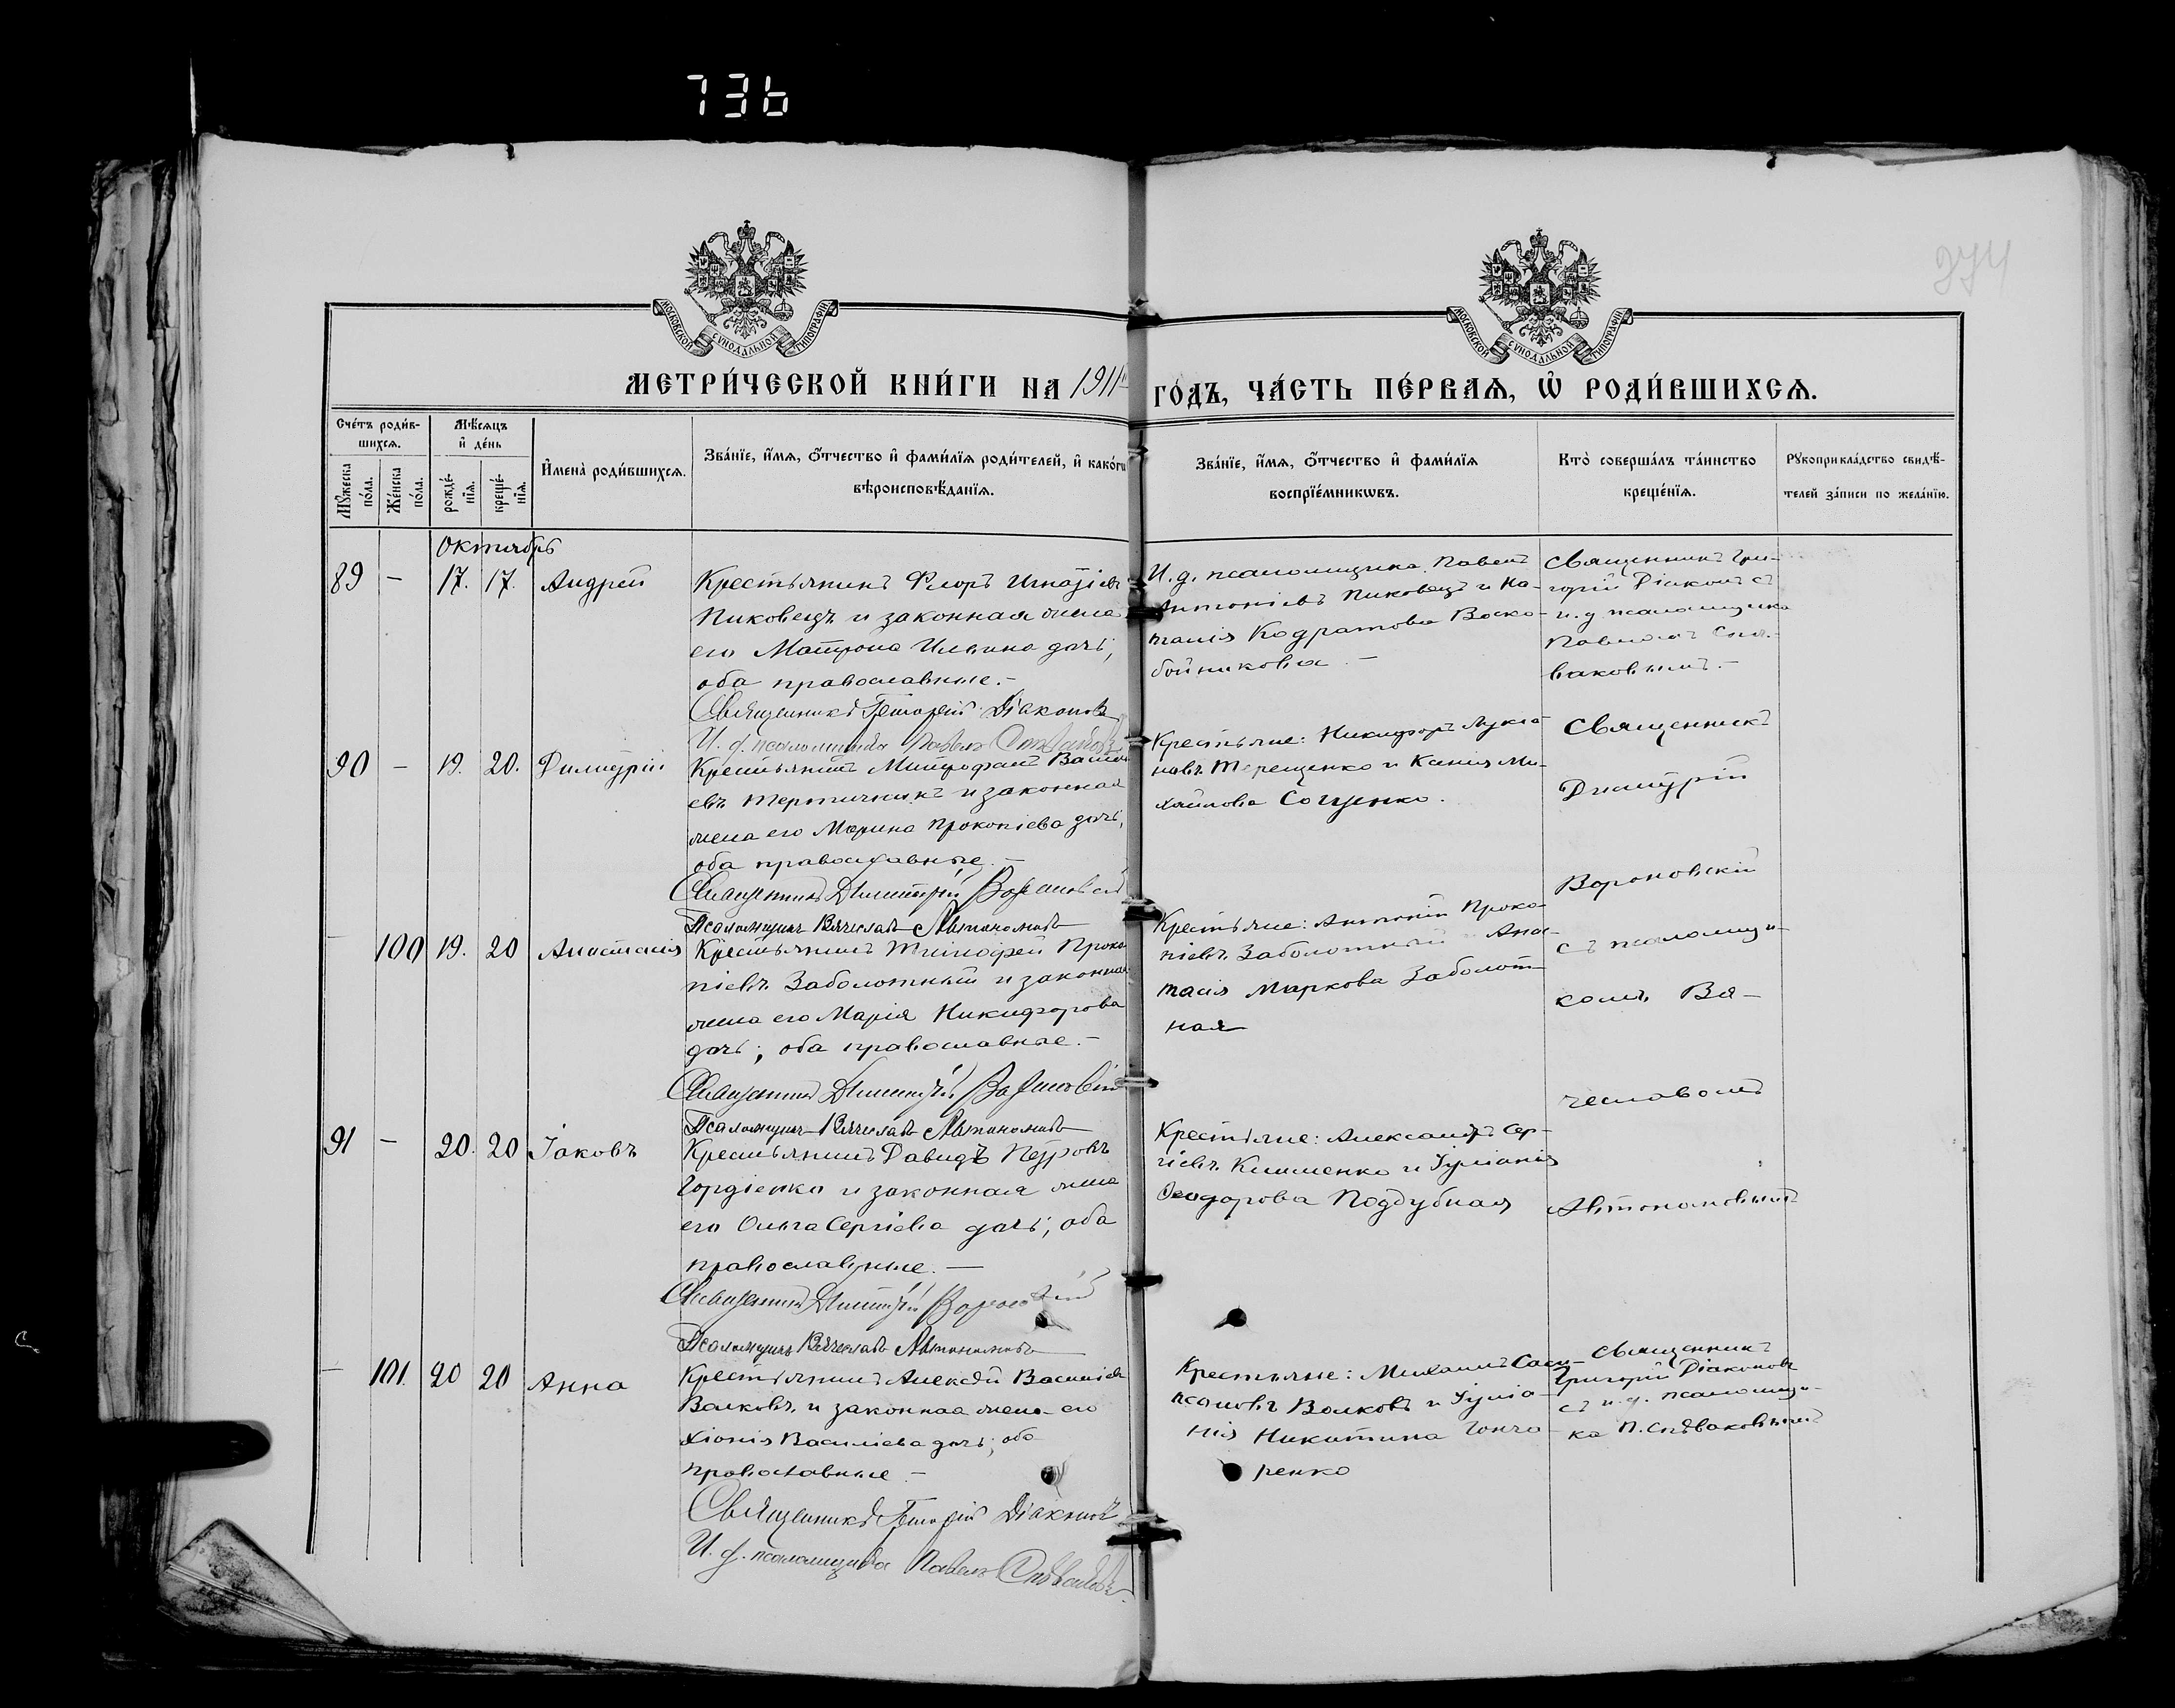 736
274
МОСКОВСКОЙ СѴНОДАЛЬНОЙ ТИПОГРАФІИ
МОСКОВСКОЙ СѴНОДАЛЬНОЙ ТИПОГРАФІИ
МЕТРИ́ЧЕСКОЙ КНИ́ГИ НА 1911й
ГО́ДЪ, ЧА́СТЬ ПЕ́РВАѦ, Ѿ РОДИ́ВШИХСѦ.
Сче́тъ роди́в-
шихсѧ.
Мꙋ́жеска
по́ла.
Же́нска
по́ла.
Мѣ́сѧцъ
и҆ де́нь
рожде́-
нїѧ.
креще́-
нїѧ.
И҆мена̀ роди́вшихсѧ.
Зва́нїе, и҆́мѧ, ѻ҆́тчество и҆ фами́лїѧ роди́телей, и҆ како́гѡ
вѣроисповѣ́данїѧ.
Зва́нїе, и҆́мѧ, ѻ҆́тчество и҆ фами́лїѧ
воспрїе́мникѡвъ.
Кто̀ соверша́лъ та́инство
креще́нїѧ.
Рꙋкоприкла́дство свидѣ́-
телей за́писи по жела́нїю.
Октябрь
89 – 17. 17. Андрей
Крестьянинъ Флоръ Игнатіевъ
Пиковецъ и законная жена
его Матрона Ильина дочь,
оба православные.–
Священникъ Григорій Діаконовъ
И. д. псаломщика Павелъ Спѣваковъ
И. д. псаломщика Павелъ
Антоніевъ Пиковецъ и На-
талія Кодратова Воско-
бойникова –
Священникъ Гри-
горій Діаконъ съ
и. д. псаломщика
Павломъ Спѣ-
ваковымъ.–
90 – 19. 20. Димитрій
Крестьянинъ Митрофанъ Васильи-
евъ Терпичникъ и законная
жена его Марина Прокопіева дочь,
оба православные.–
Священникъ Димитрій Вороновскій
Псаломщикъ Вячеславъ Автономовъ
Крестьяне: Никифоръ Лукіа-
новъ Терещенко и Ксенія Ми-
хайлова Сощенко.
Священникъ
Димитрій
Вороновскій
съ псаломщи-
комъ Вя-
чеславомъ
Автономовымъ
– 100 19. 20 Анастасія
Крестьянинъ Тимофей Проко-
піевъ Заболотный и законная
жена его Марія Никифорова
дочь; оба православные.–
Священникъ Димитрій Вороновскій
Псаломщикъ Вячеславъ Автономовъ
Крестьяне: Антоній Проко-
піевъ Заболотный Анас-
тасія Маркова Заболот-
ная
91 – 20. 20 Іаковъ
Крестьянинъ Давидъ Петровъ
Гордіенко и законная жена
его Ольга Сергіева дочь; оба
православные.–
Священникъ Димитрій Вороновскій
Псаломщикъ Вячеславъ Автономовъ
Крестьяне: Александръ Сер-
гіевъ Клименко и Іуліанія
Ѳеодорова Поддубная
– 101. 20 20 Анна
Крестьянинъ Алексѣй Василіевъ
Волковъ и законная жена его
Хіонія Василіева дочь; оба
православные –
Священникъ Григорій Діаконовъ
И. д. псаломщика Павелъ Спѣваковъ.
Крестьяне: Михаилъ
Волковъ и Іуліа-
нія Никитина Гонча-
ренко
Священникъ
Григорій Діаконовъ
съ и. д. псаломщи-
ка П. Спѣваковымъ